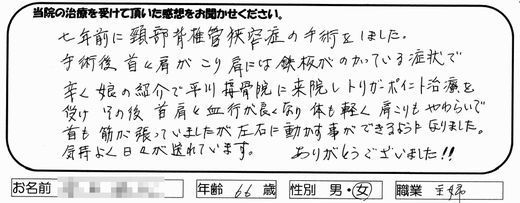 当院の治療を受けて頂いた感想をお聞かせください。
七年前に頸部脊椎管狭窄症の手術をしました。
手術後、首と肩がこり肩には鉄板がのっている症状で
辛く娘の紹介で平川接骨院に来院しトリガーポイント治療を
受け その後 首肩と血行が良くなり 体も軽く 肩こりもやわらいで
首も筋が張っていましたが左右に動かす事ができるようになりました。
気持よく日々が送れています。 ありがとうございました!!
お名前 年齢 66 歳 性別 男・女 職業 主婦